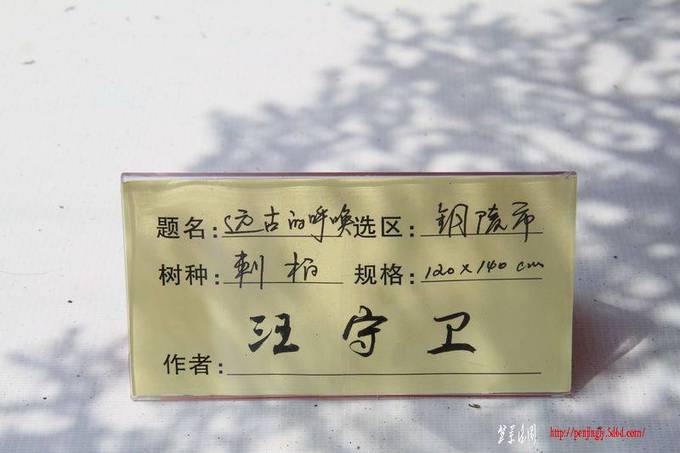 题名：远古的呼唤 选区：铜陵市
树种：刺柏 规格：120×140cm
作者：汪守卫
http://penjingjy.5d6d.com/